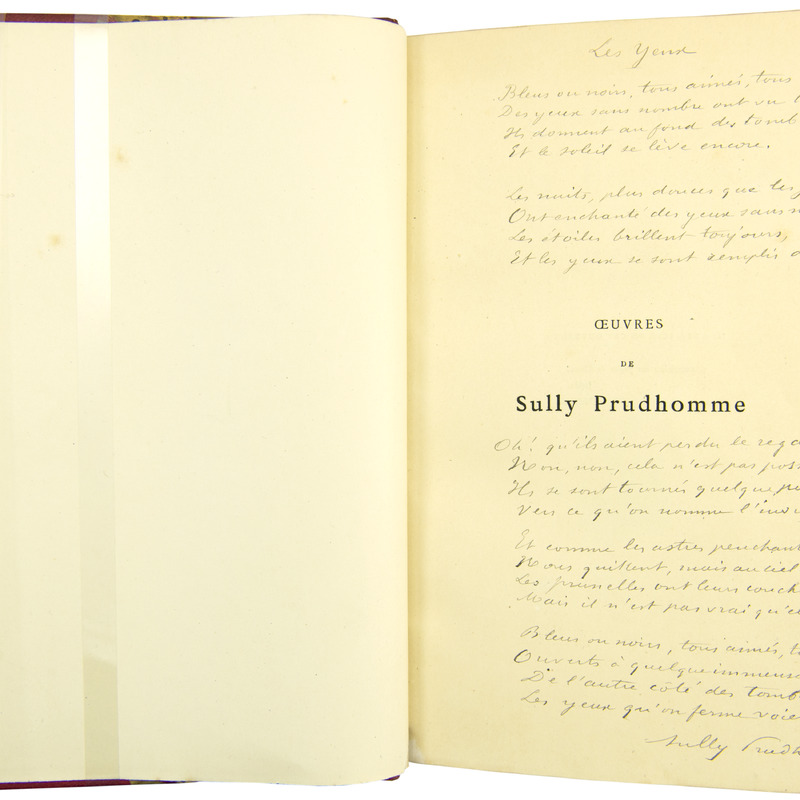 Les Yeux
Bleus ou noirs, tous aimés, tous
Des yeux sans nombre ont vu l
Ils dorment au fond des tomb
Et le soleil se lève encore.
Les nuits, plus douces que les j
Ont enchanté des yeux sans n
Les étoiles brillent toujours,
Et les yeux se sont remplis d
ŒUVRES
DE
Sully Prudhomme
Oh! qu'ils aient perdu le rega
Non, non, cela n'est pas poss
Ils se sont tournés quelque pa
Vers ce qu'on nomme l'invi
Et comme les astres penchant
Nous quittent, mais au ciel
Les prunelles ont leurs couch
Mais il n'est pas vrai qu'el
Bleus ou noirs, tous aimés, t
Ouverts à quelque immense
De l'autre côté des tomb
Les yeux qu'on ferme voie
Sully Prudh